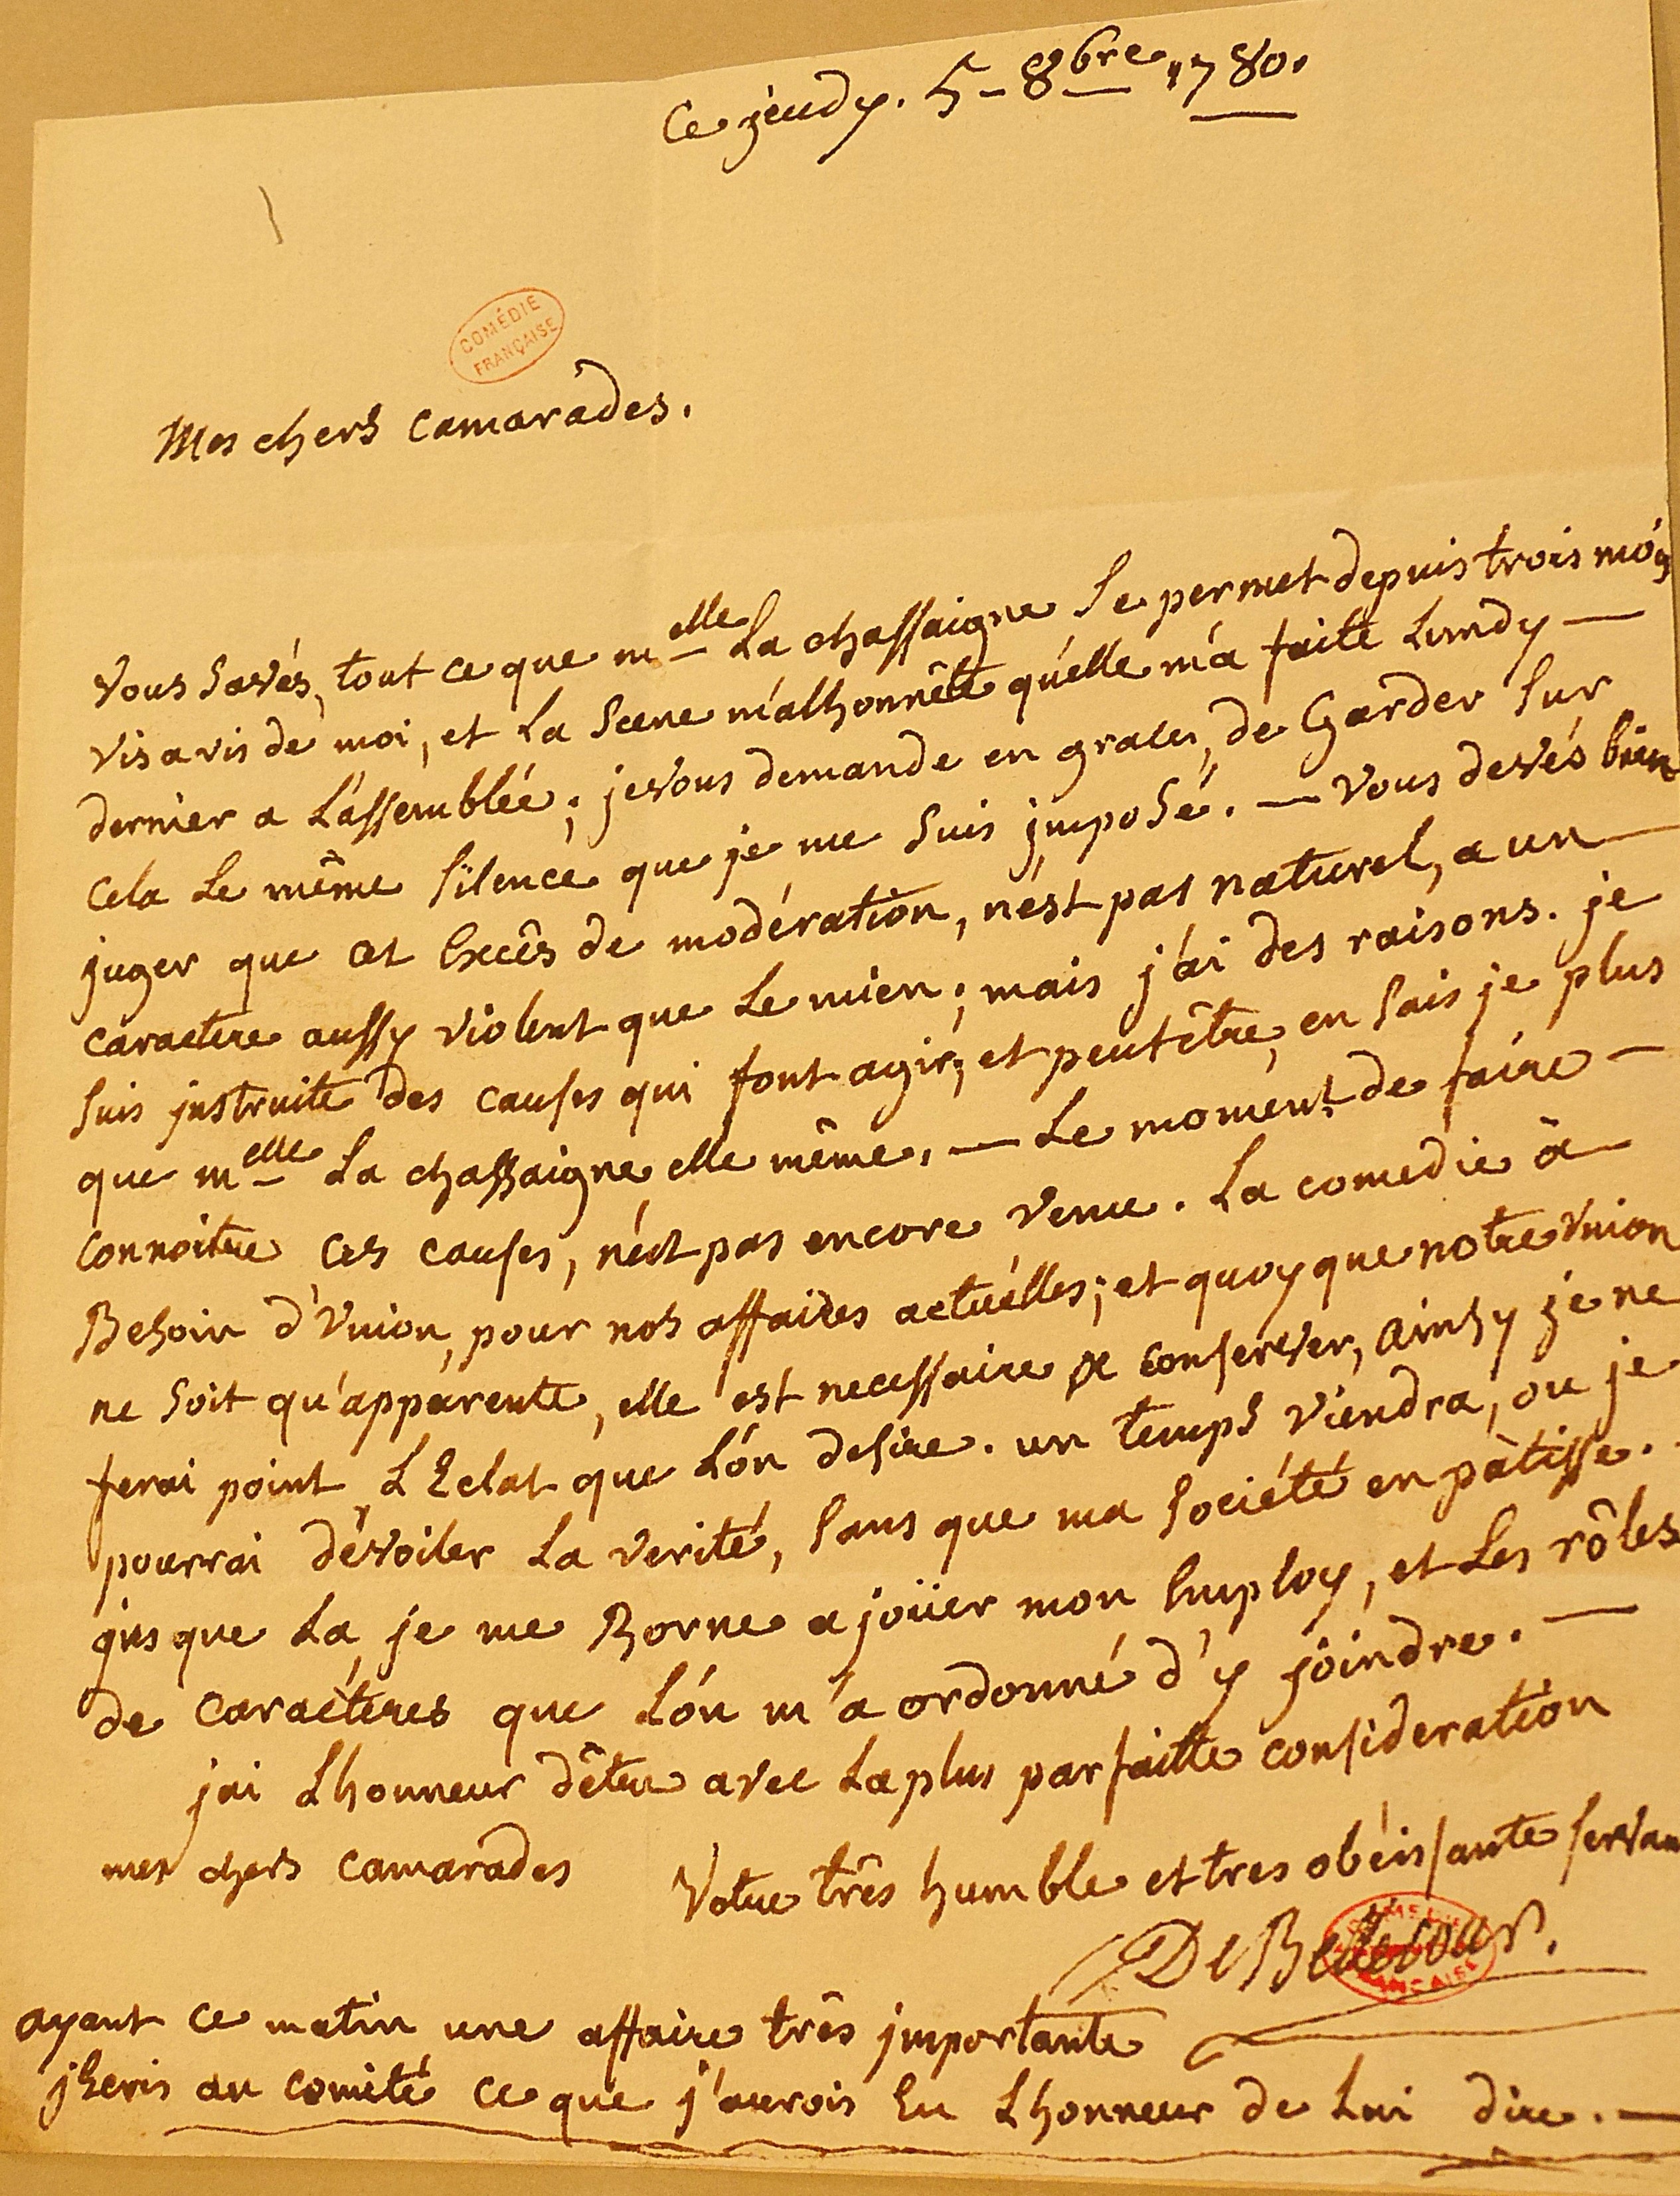 Ce jeudy. 5 - 8bre 1780.
COMÉDIE
FRANÇAISE
Mes chers camarades.
Vous savés, tout ce que melle La chassaigne se permet depuis trois mois
vis a vis de moi, et La scene malhonnête qu'elle m'a faite Lundy —
dernier a L'assemblée; je vous demande en grace, de Garder sur
cela Le même silence que je me suis jmposé. — Vous devés bien
juger que cet Excês de modération, n'est pas naturel, a un —
caractere aussy violent que Le mien; mais j'ai des raisons. je
suis jnstruite des causes qui font agir; et peut être, en sais je plus
que melle La chassaigne elle même. — Le moment de faire —
connoitre ces causes, n'est pas encore venu. La comedie à —
Besoin d'Vnion, pour nos affaires actuélles; et quoy que notre Vnion
ne soit qu'apparente, elle est necessaire a conserver, ainsy je ne
ferai point L'Eclat que L'on desire. un temps viendra, ou je
pourrai dévoiler La verité, sans que ma société en pàtisse.
jusque La, je me Borne a joüer mon Employ, et Les rôles
de caractéres que L'on m'a ordonné d'y joindre. —
jai Lhonneur dêtre avec La plus parfaitte consideration
mes chers camarades
Votre três humble et tres obéissante servan
De Bellecour.
COMÉDIE
FRANÇAISE
ayant ce matin une affaire três jmportante
jEcris au comité ce que j'aurois Eu Lhonneur de Lui dire. —